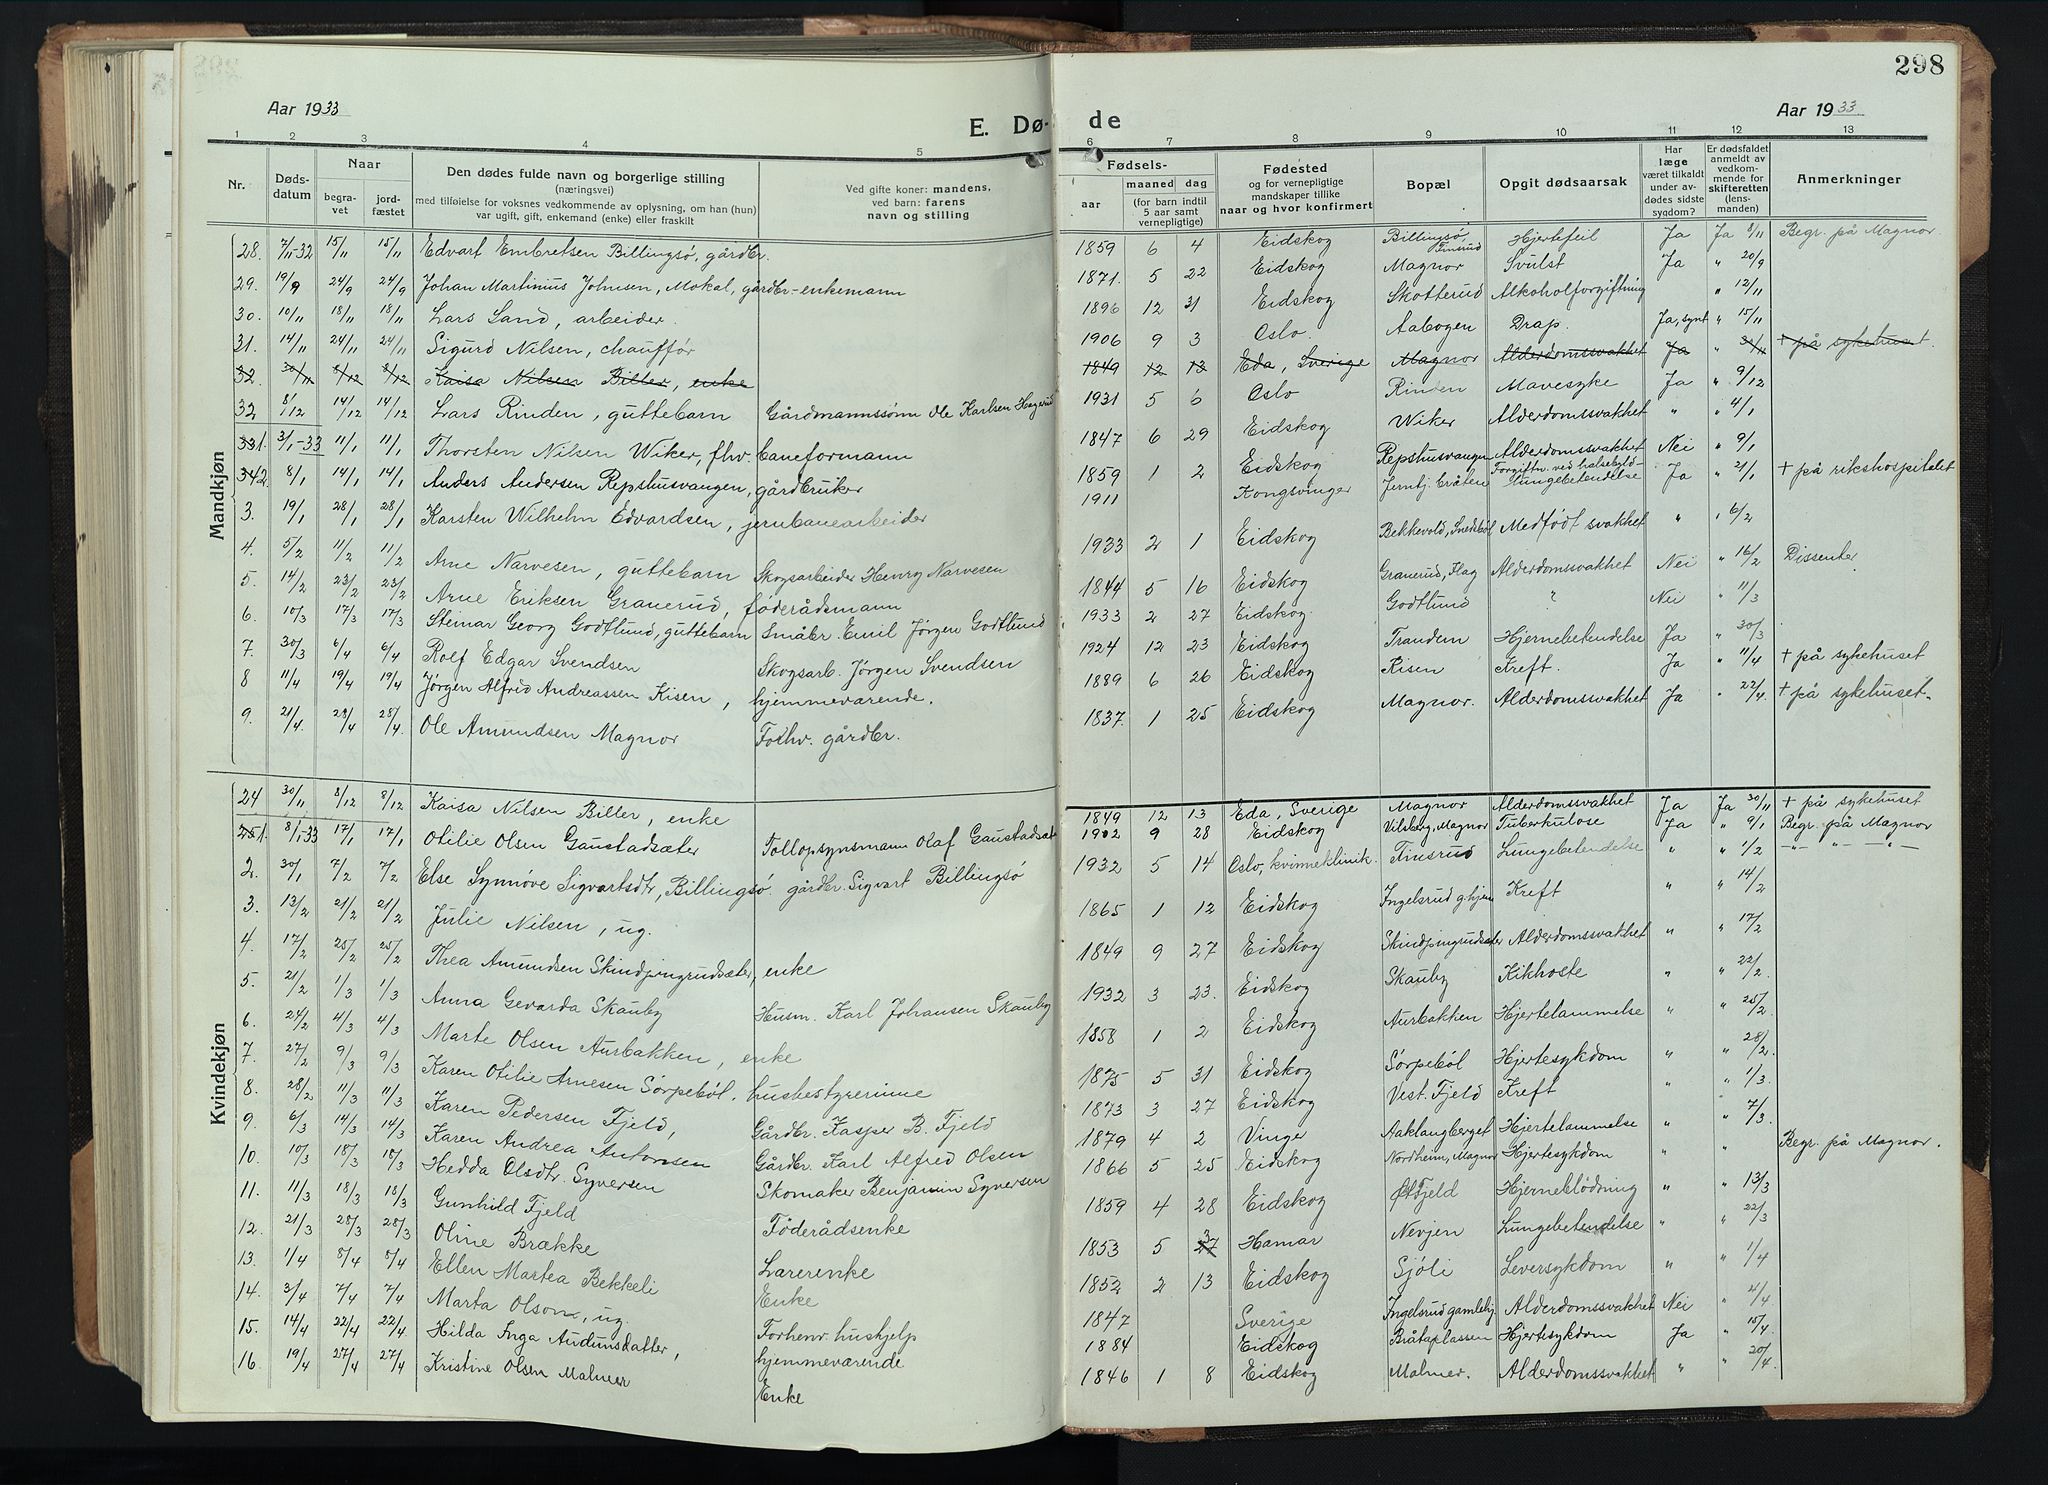 298
Aar 1933
E. Dø-
de
Aar 1933
1 2 3 4 5 6 7 8 9 10 11 12 13
Nr.
Døds-
datum
Naar
begra-
vet
jord-
fæstet
Den dødes fulde navn og borgerlige stilling
(næringsvei)
med tilføielse for voksnes vedkommende av oplysning, om han (hun)
var ugift, gift, enkemand (enke) eller fraskilt
Ved gifte koner: mandens,
ved barn: farens
navn og stilling
Fødsels-
aar
maaned
dag
(for barn indtil
5 aar samt
vernepligtige)
Fødested
og for vernepligtige
mandskaper tillike
naar og hvor konfirmert
Bopæl
Opgit dødsaarsak
Har
læge
været tilkaldt
under av-
dødes sidste
sygdom?
Er dødsfaldet
anmeldt av
vedkom-
mende for
skifteretten
(lens-
manden)
Anmerkninger
Mandkjøn
28. 7/11-32 15/11 15/11 Edvart Embretsen Billingsø, gårdbr. 1859 6 4 Eidskog Billingsø, Finsrud Hjertefeil Ja Ja 8/11 Begr. på Magnor.
29. 19/9 24/9 24/9 Johan Martinius Johnsen, Mokal, gårdbr-enkemann 1871 5 22 Eidskog Magnor Svulst Ja " 20/9
30. 10/11 18/11 18/11 Lars Sand, arbeider. 1896 12 31 Eidskog Skotterud Alkoholforgiftning " 12/11
31. 14/11 24/11 24/11 Sigurd Nilsen, chauffør 1906 9 3 Oslo. Aabogen Drap. Ja, synt " 15/11
32. 30/11 8/12 8/12 Kaisa Nilsen Biller, enke 1849 12 13 Eda, Sverige Magnor Alderdomssvakhet Ja " + på sykehuset.
32 8/12 14/12 14/12 Lars Rinden, guttebarn Gårdmannssønn Ole Karlsen Hagerud 1931 5 6 Oslo Rinden Mavesyke Ja " 9/12
331. 3/1-33 11/1 11/1 Thorsten Nilsen Wiker, fhv. baneformann 1847 6 29 Eidskog Wiker Alderdomssvakhet " " 4/1
342. 8/1 14/1 14/1 Anders Andersen Repshusvangen, gårdbruker 1859 1 2 Eidskog Repshusvangen Alderdomssvakhet Nei " 9/1
3. 19/1 28/1 28/1 Karsten Wilhelm Edvardsen, jernbanearbeider 1911 Kongsvinger Jernbj. bråten Forgiftn. ved halsebyld- Lungebetendelse Ja " 21/1 + på rikshospitalet
4. 5/2 11/2 11/2 Arne Narvesen, guttebarn Skogsarbeider Henry Narvesen 1933 2 1 Eidskog Bekkevold, Snedsbøl Medfødt svakhet " " 6/2
5. 14/2 23/2 23/2 Arne Eriksen Granerud, føderådsmann 1844 5 16 Eidskog Granerud, Flag Alderdomssvakhet Nei " 16/2 Dissenter
6. 10/3 17/3 17/3 Steinar Georg Godtlund, guttebarn Småbr. Emil Jørgen Godtlund 1933 2 27 Eidskog. Godtlund ? Nei " 11/3
7. 30/3 6/4 6/4 Rolf Edgar Svendsen Skogsarb. Jørgen Svendsen 1924 12 23 Eidskog Trandem Hjernebetendelse Ja " 30/3
8 11/4 19/4 19/4 Jørgen Alfred Andreassen Kisen, hjemmeværende. 1889 6 26 Eidskog Kisen Kreft. Ja " 11/4 + på sykehuset
9. 21/4 28/4 28/4 Ole Amundsen Magnor Forhv. gårdbr. 1837. 1 25 Eidskog Magnor. Alderdomssvakhet Ja " 22/4. + på sykehuset.
Kvindekjøn
24 30/11 8/12 8/12 Kaisa Nilsen Biller, enke 1849 12 13 Eda, Sverige Magnor Alderdomssvakhet Ja Ja 30/11 + på sykehuset
251. 8/1-33 17/1 17/1 Otilie Olsen Gaustadsæter Tollopsynsmann Olaf Gaustadsæter 1902 9 28 Eidskog Vilsberg, Magnor Tuberkulose Ja " 9/1 Begr. på Magnor
2. 30/1 7/2 7/2 Else Synnøve Sigvartsdtr, Billingsø gårdbr. Sigvart Billingsø 1932 5 14 Oslo, kvinneklinik. Finsrud Lungebetendelse " " 1/2 -"- " -"-
3. 13/2 21/2 21/2 Julie Nilsen, ug. 1865 1 12 Eidskog Ingelsrud g.hjem Kreft " " 14/2
4. 17/2 25/2 25/2 Thea Amundsen Skindpingrudsæter, enke 1849 9 27 Eidskog Skindpingrudsæter Alderdomssvakhet " " 17/2
5. 21/2 1/3 1/3 Anna Gevarda Skauby Husm. Karl Johansen Skauby 1932 3 23. Eidskog Skauby Kikhoste " " 22/2
6. 24/2 4/3 4/3 Marte Olsen Aurbakken, enke 1858 1 2 Eidskog Aurbakken Hjertelammelse " " 25/2
7. 27/2 9/3 9/3 Karen Otilie Arnesen Sørpebøl, husbestyrerinne 1875 5 31 Eidskog Sørpebøl Hjertesykdom " " 28/2.
8. 28/2 11/3 11/3 Karen Pedersen Fjeld, Gårdbr. Kasper B. Fjeld 1873 3 27 Eidskog Vest. Fjeld Kreft " " 1/3
9. 6/3 14/3 14/3 Karen Andrea Antonsen Gårdbr. Karl Alfred Olsen 1879 4 2 Vinger Aaklangberget Hjertelammelse " " 7/3
10. 10/3 18/3 18/3 Hedda Olsdtr. Syversen Skomaker Benjamin Syversen 1866 5 25 Eidskog Nordheim, Magnor Hjertesykdom " " Begr. på Magnor.
11. 11/3 18/3 18/3 Gunhild Fjeld Føderådsenke 1859 4 28 Eidskog Ø. Fjeld Hjerneblødning " " 13/3
12. 21/3 28/3 28/3 Oline Brække Lærerenke 1853 5 Hamar Nevjen Lungebetendelse " " 22/3
13. 1/4 8/4 8/4 Ellen Martea Bekkeli Enke 1852 2 13 Eidskog Sjøli Leversykdom " " 1/4
14. 3/4 7/4 7/4 Marta Olson, ug. Forhenv. hushjelp 1847 Sverige Ingelsrud gamlehj. Alderdomssvakhet Nei " 4/4
15. 14/4 22/4 22/4 Hilda Inga Audunsdatter, hjemmeværende 1884 Eidskog Bråtaplassen Hjertesykdom Ja " 15/4
16. 19/4 27/4 27/4 Kristine Olsen Malmer Enke 1846 1 8 Eidskog Malmer. Alderdomssvakhet " " 20/4.